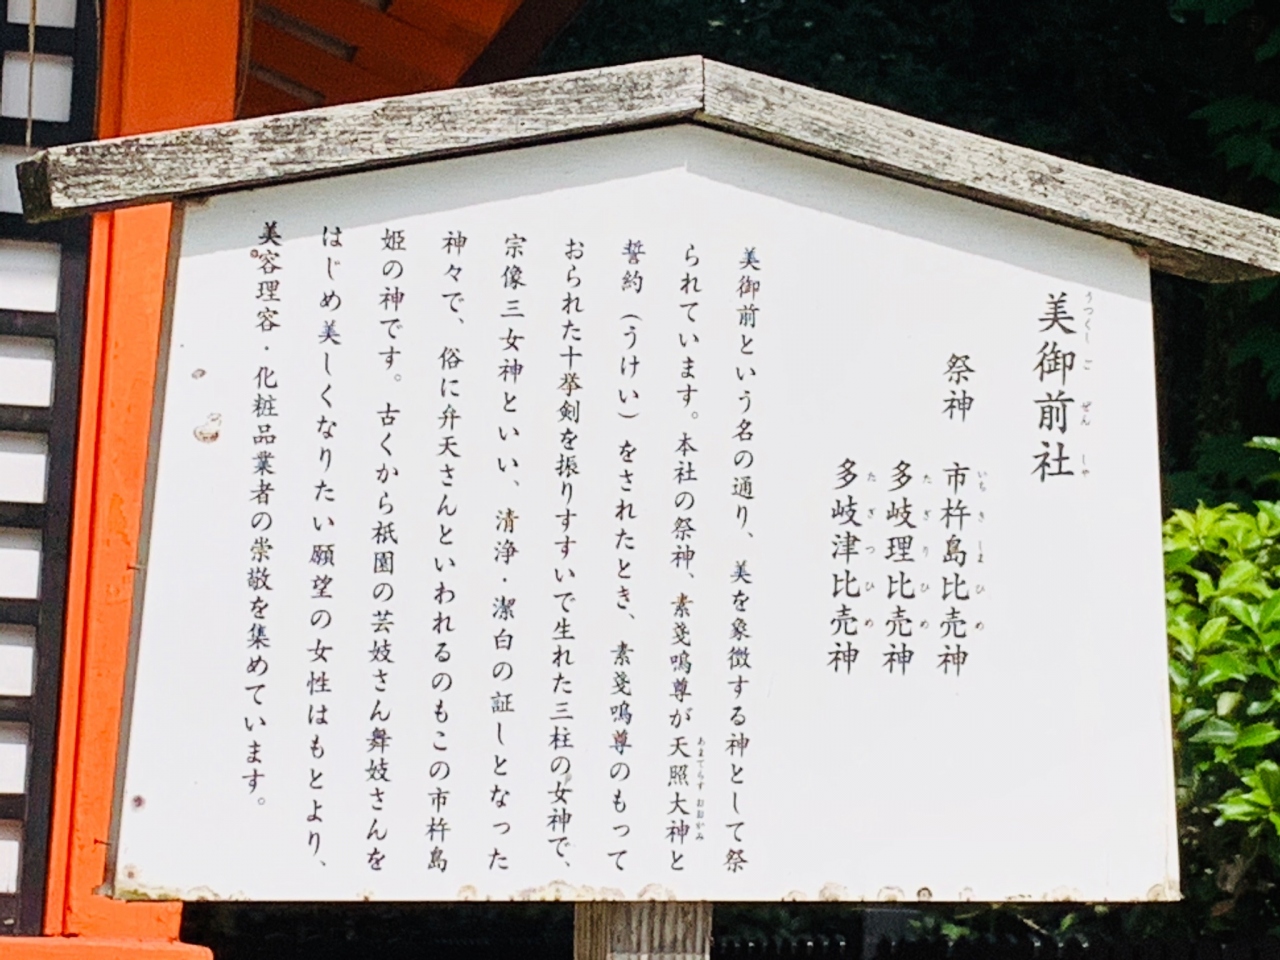 美御前社
祭神 市杵島比売神
多岐理比売神
多岐津比売神
美御前という名の通り、美を象徴する神として祭
られています。本社の祭神、素戔嗚尊が天照大神と
誓約（うけい）をされたとき、素戔嗚尊のもって
おられた十拳剣を振りすすいで生れた三柱の女神で、
宗像三女神といい、清浄・潔白の証しとなった
神々で、俗に弁天さんといわれるのもこの市杵島
姫の神です。古くから祇園の芸妓さん舞妓さんを
はじめ美しくなりたい願望の女性はもとより、
美容理容・化粧品業者の崇敬を集めています。